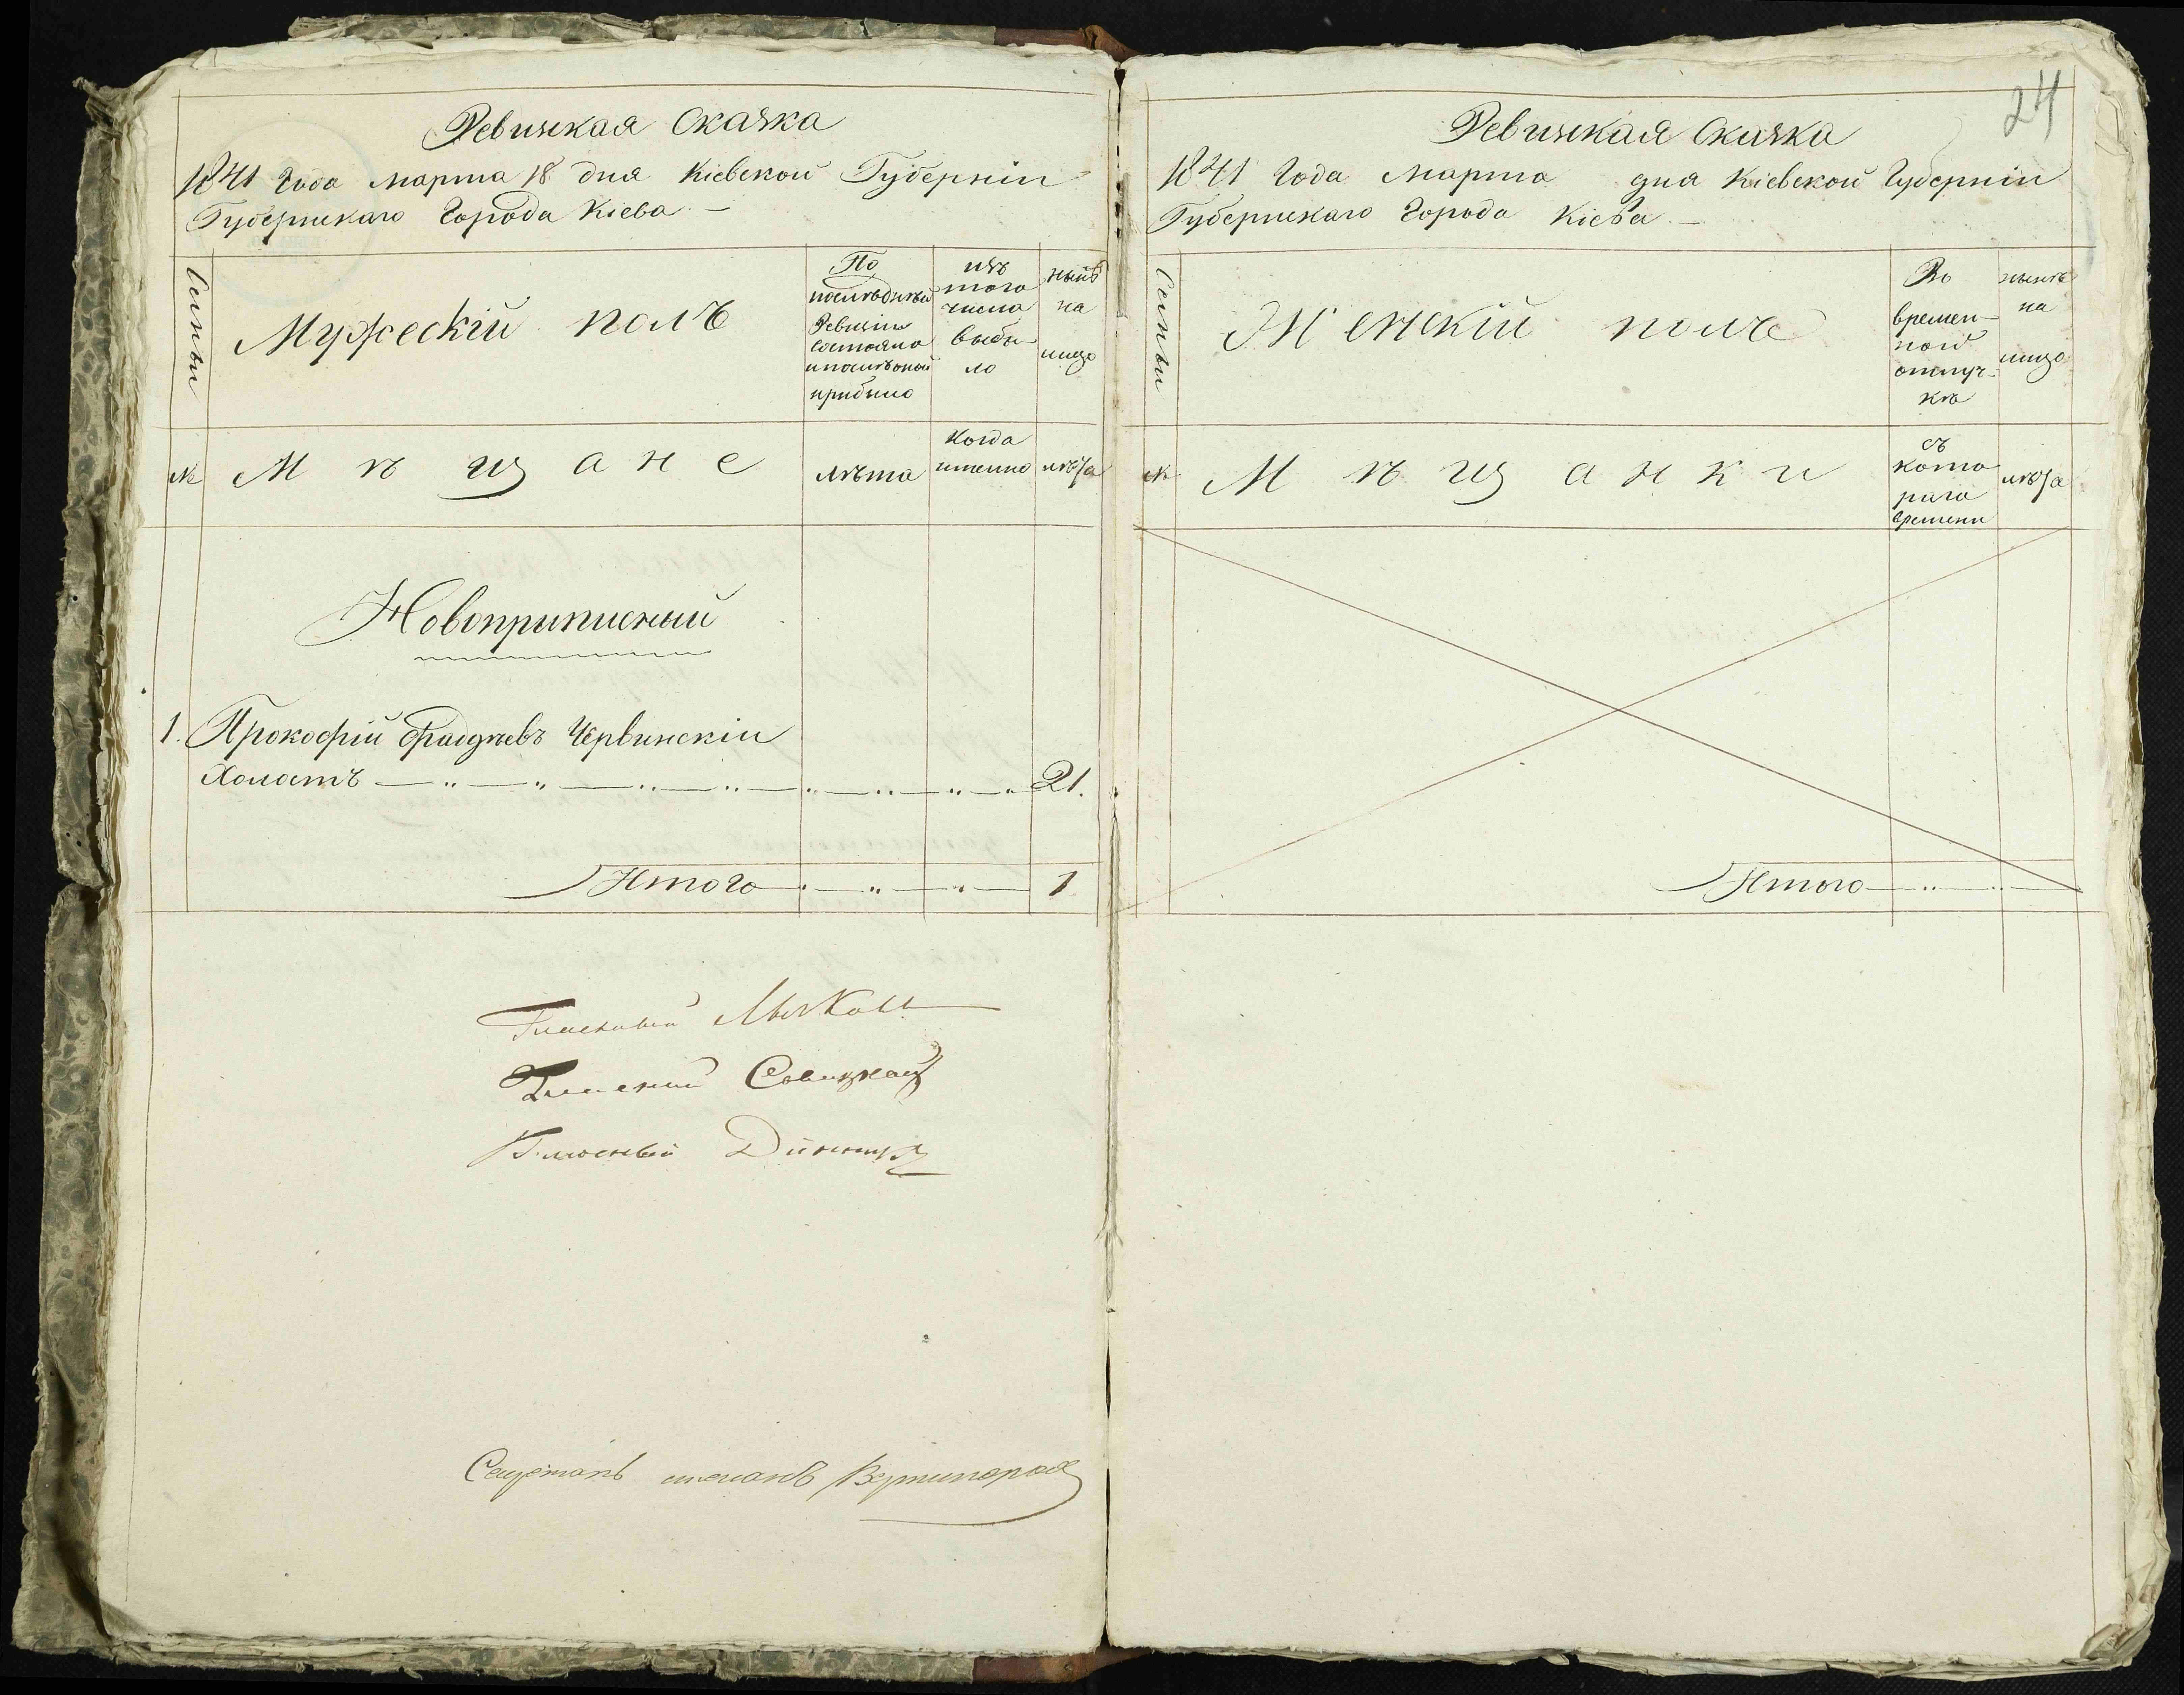 Ревизкая Сказка
1841 Года Марта 18 дня Кіевской Губерніи
Губернскаго Города Кіева —
Семьи
Мужескій полъ
По
последней
Ревизіи
состояло
и после оной
прибыло
изъ
того
числа
выбы
ло
ныне
на
лицо
№
Мѣщане
лѣта
когда
именно
лѣта
Новоприписный
1. Прокофій Фадѣевъ Червинскій
Холостъ 21.
Итого 1
Гласный
Гласный Савицкій
Гласный
Степанъ
24
Ревизкая Сказка
1841 Года Марта дня Кіевской Губерніи
Губернскаго Города Кіева —
Семьи
Женскій полъ
Во
времен-
ной
отлуч-
кѣ
нынѣ
на
лицо
№
Мѣщанки
съ
кото
раго
времени
лѣта
Итого